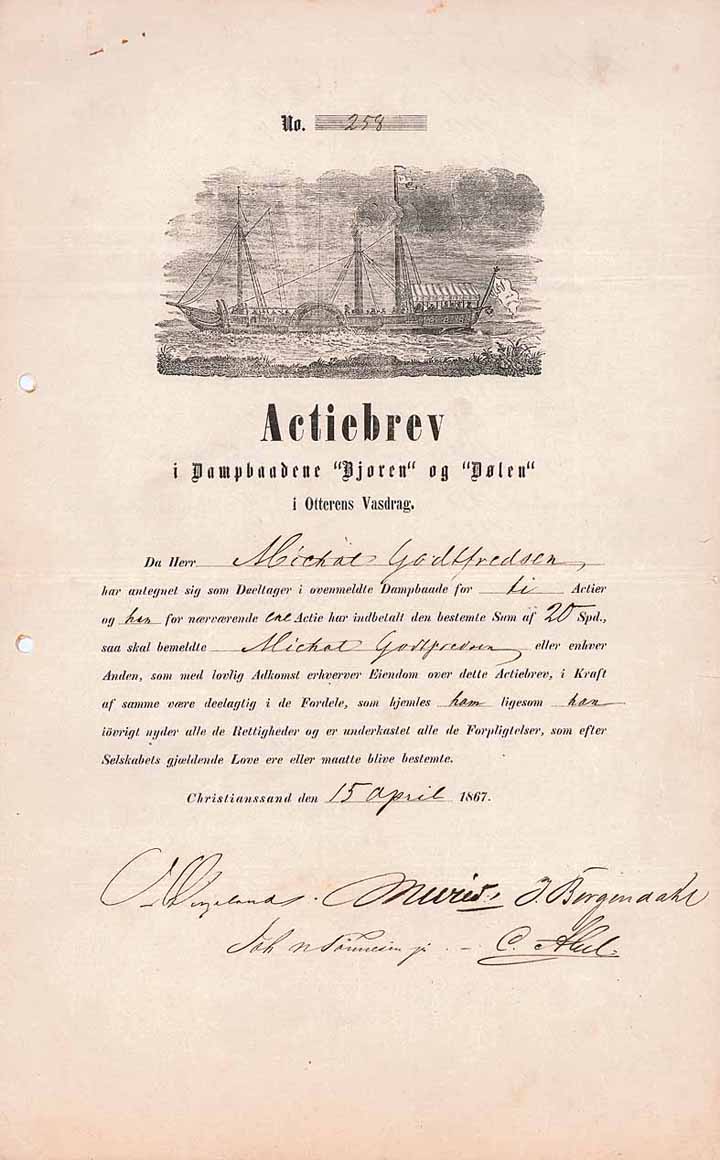 No. 258
Actiebrev
i Dampbaadene "Bjoren" og "Dølen"
i Otterens Vasdrag.
Da Herr Michal Godtfredsen,
har antegnet sig som Deeltager i ovenmeldte Dampbaade for ti Actier
og han for nærværende ene Actie har indbetalt den bestemte Sum af 20 Spd.,
saa skal bemeldte Michal Godtfredsen eller enhver
Anden, som med lovlig Adkomst erhverver Eiendom over dette Actiebrev, i Kraft
af samme være deelagtig i de Fordele, som hjemles ham ligesom han
iövrigt nyder alle de Rettigheder og er underkastet alle de Forpligtelser, som efter
Selskabets gjældende Love ere eller maatte blive bestemte.
Christianssand den 15 April 1867.
J. Bergendahl
C.